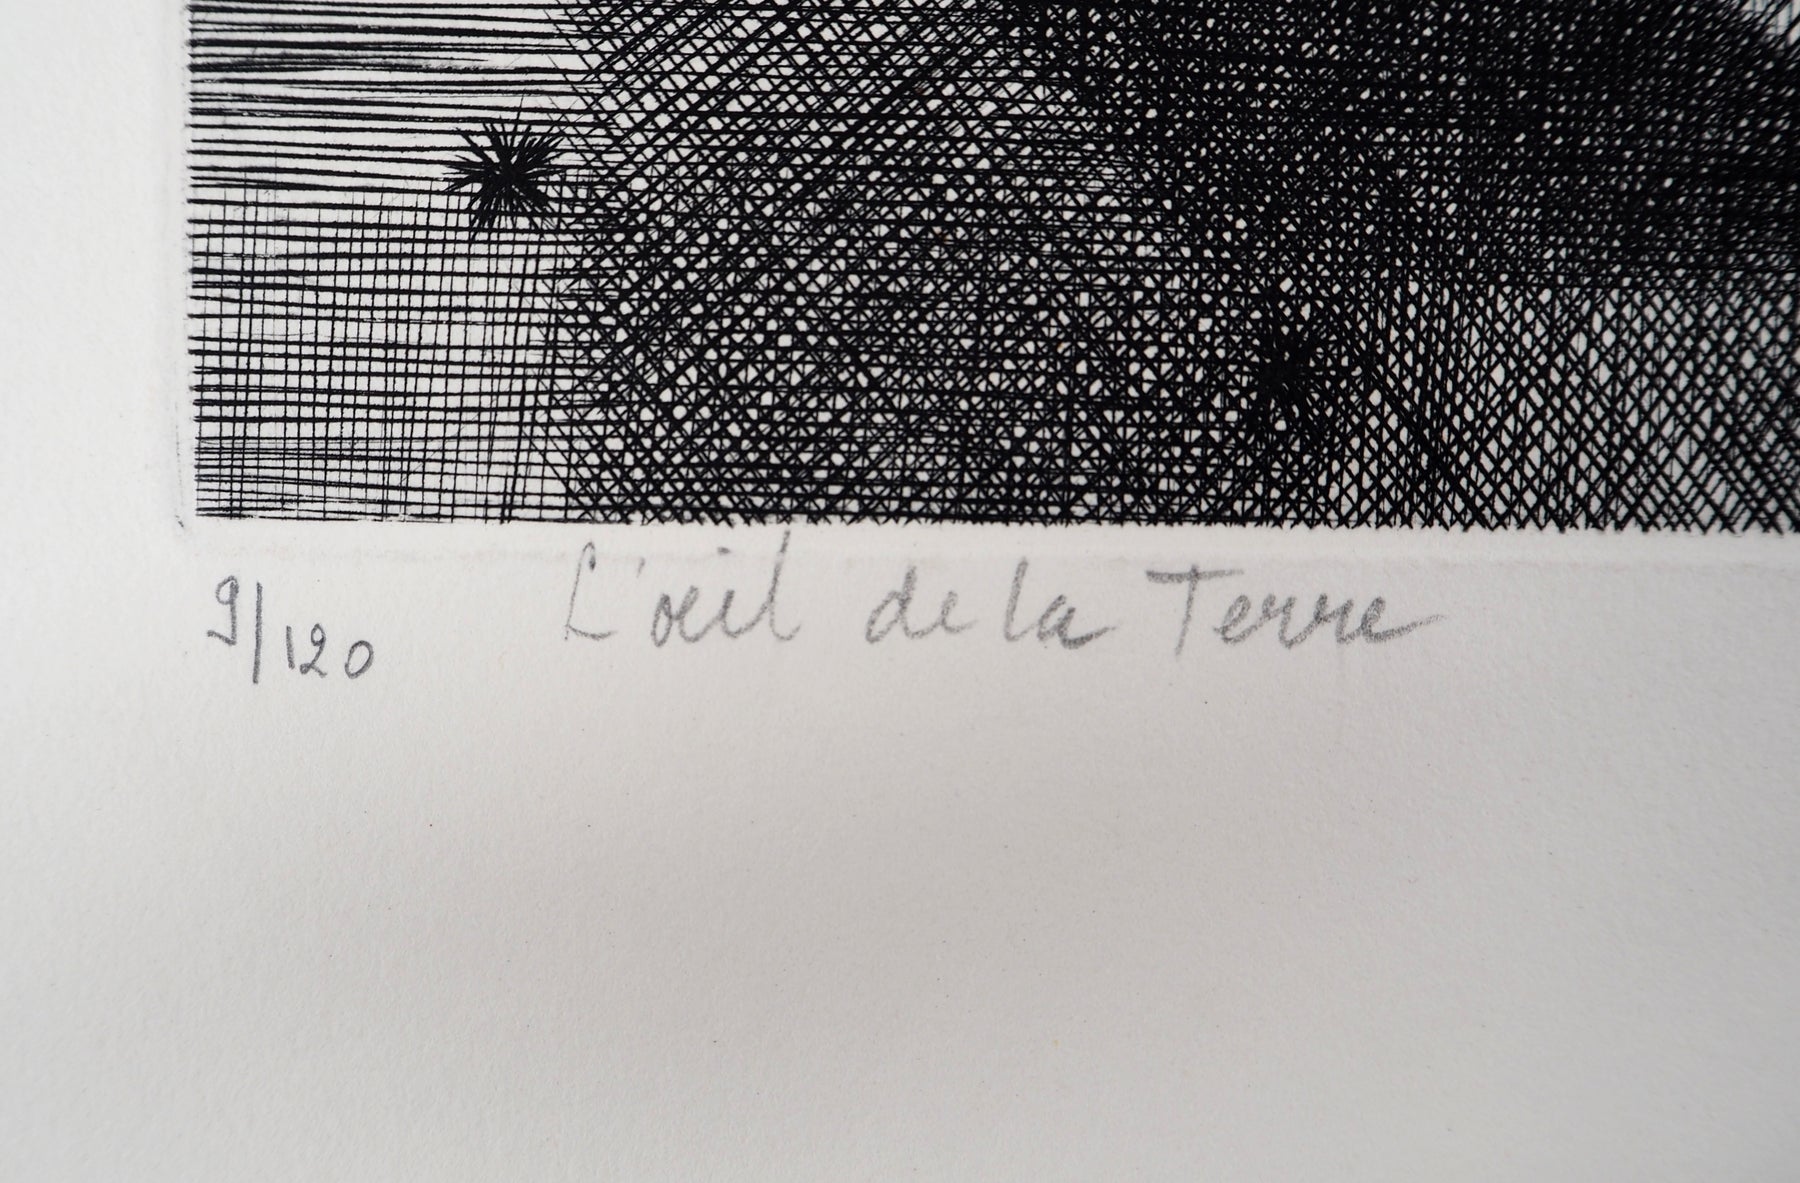 9/120 L'oeil de la Terre